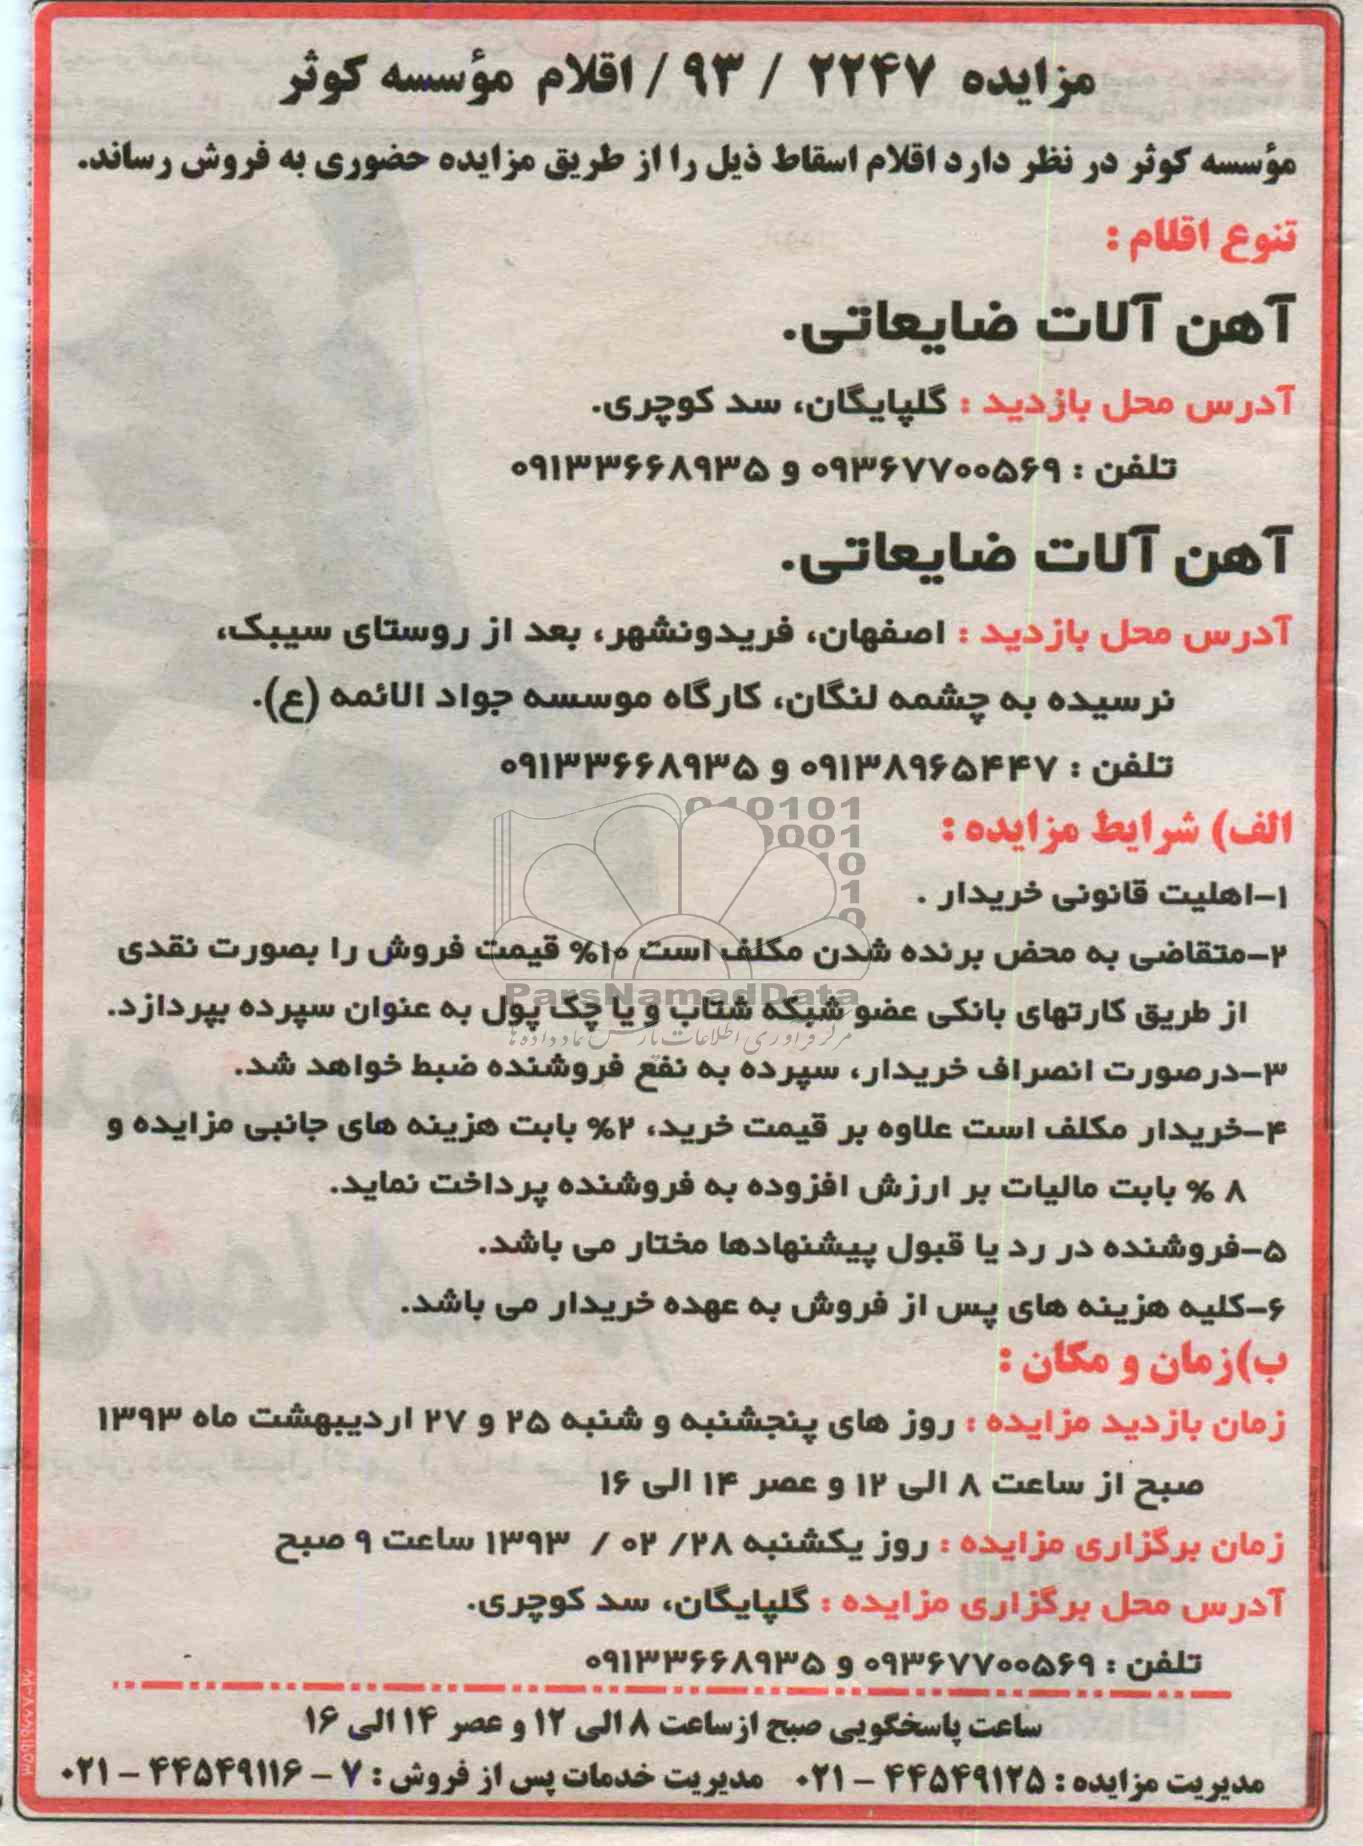 مزایده ۲۲۴۷ / ۹۳ / اقلام مؤسسه کوثر
مؤسسه کوثر در نظر دارد اقلام اسقاط ذیل را از طریق مزایده حضوری به فروش رساند.
تنوع اقلام :
آهن آلات ضایعاتی.
آدرس محل بازدید : گلپایگان، سد کوچری.
تلفن : ۰۹۳۶۷۷۰۰۵۶۹ و ۰۹۱۳۳۶۶۸۹۳۵
آهن آلات ضایعاتی.
آدرس محل بازدید : اصفهان، فریدونشهر، بعد از روستای سیبک،
نرسیده به چشمه لنگان، کارگاه موسسه جواد الائمه (ع).
تلفن : ۰۹۱۳۸۹۶۵۴۴۷ و ۰۹۱۳۳۶۶۸۹۳۵
الف) شرایط مزایده :
۱-اهلیت قانونی خریدار .
۲-متقاضی به محض برنده شدن مکلف است ۱۰% قیمت فروش را بصورت نقدی
از طریق کارتهای بانکی عضو شبکه شتاب و یا چک پول به عنوان سپرده بپردازد.
ParsNamadData
مرکز فرآوری اطلاعات پارس نماد داده ها
۳-درصورت انصراف خریدار، سپرده به نفع فروشنده ضبط خواهد شد.
۴-خریدار مکلف است علاوه بر قیمت خرید، ۲% بابت هزینه های جانبی مزایده و
۸ % بابت مالیات بر ارزش افزوده به فروشنده پرداخت نماید.
۵-فروشنده در رد یا قبول پیشنهادها مختار می باشد.
۶-کلیه هزینه های پس از فروش به عهده خریدار می باشد.
ب)زمان و مکان :
زمان بازدید مزایده : روز های پنجشنبه و شنبه ۲۵ و ۲۷ اردیبهشت ماه ۱۳۹۳
صبح از ساعت ۸ الی ۱۲ و عصر ۱۴ الی ۱۶
زمان برگزاری مزایده : روز یکشنبه ۲۸/ ۰۲ / ۱۳۹۳ ساعت ۹ صبح
آدرس محل برگزاری مزایده : گلپایگان، سد کوچری.
تلفن : ۰۹۳۶۷۷۰۰۵۶۹ و ۰۹۱۳۳۶۶۸۹۳۵
ساعت پاسخگویی صبح از ساعت ۸ الی ۱۲ و عصر ۱۴ الی ۱۶
مدیریت مزایده : ۴۴۵۴۹۱۲۵ - ۰۲۱ مدیریت خدمات پس از فروش : ۷ - ۴۴۵۴۹۱۱۶ - ۰۲۱